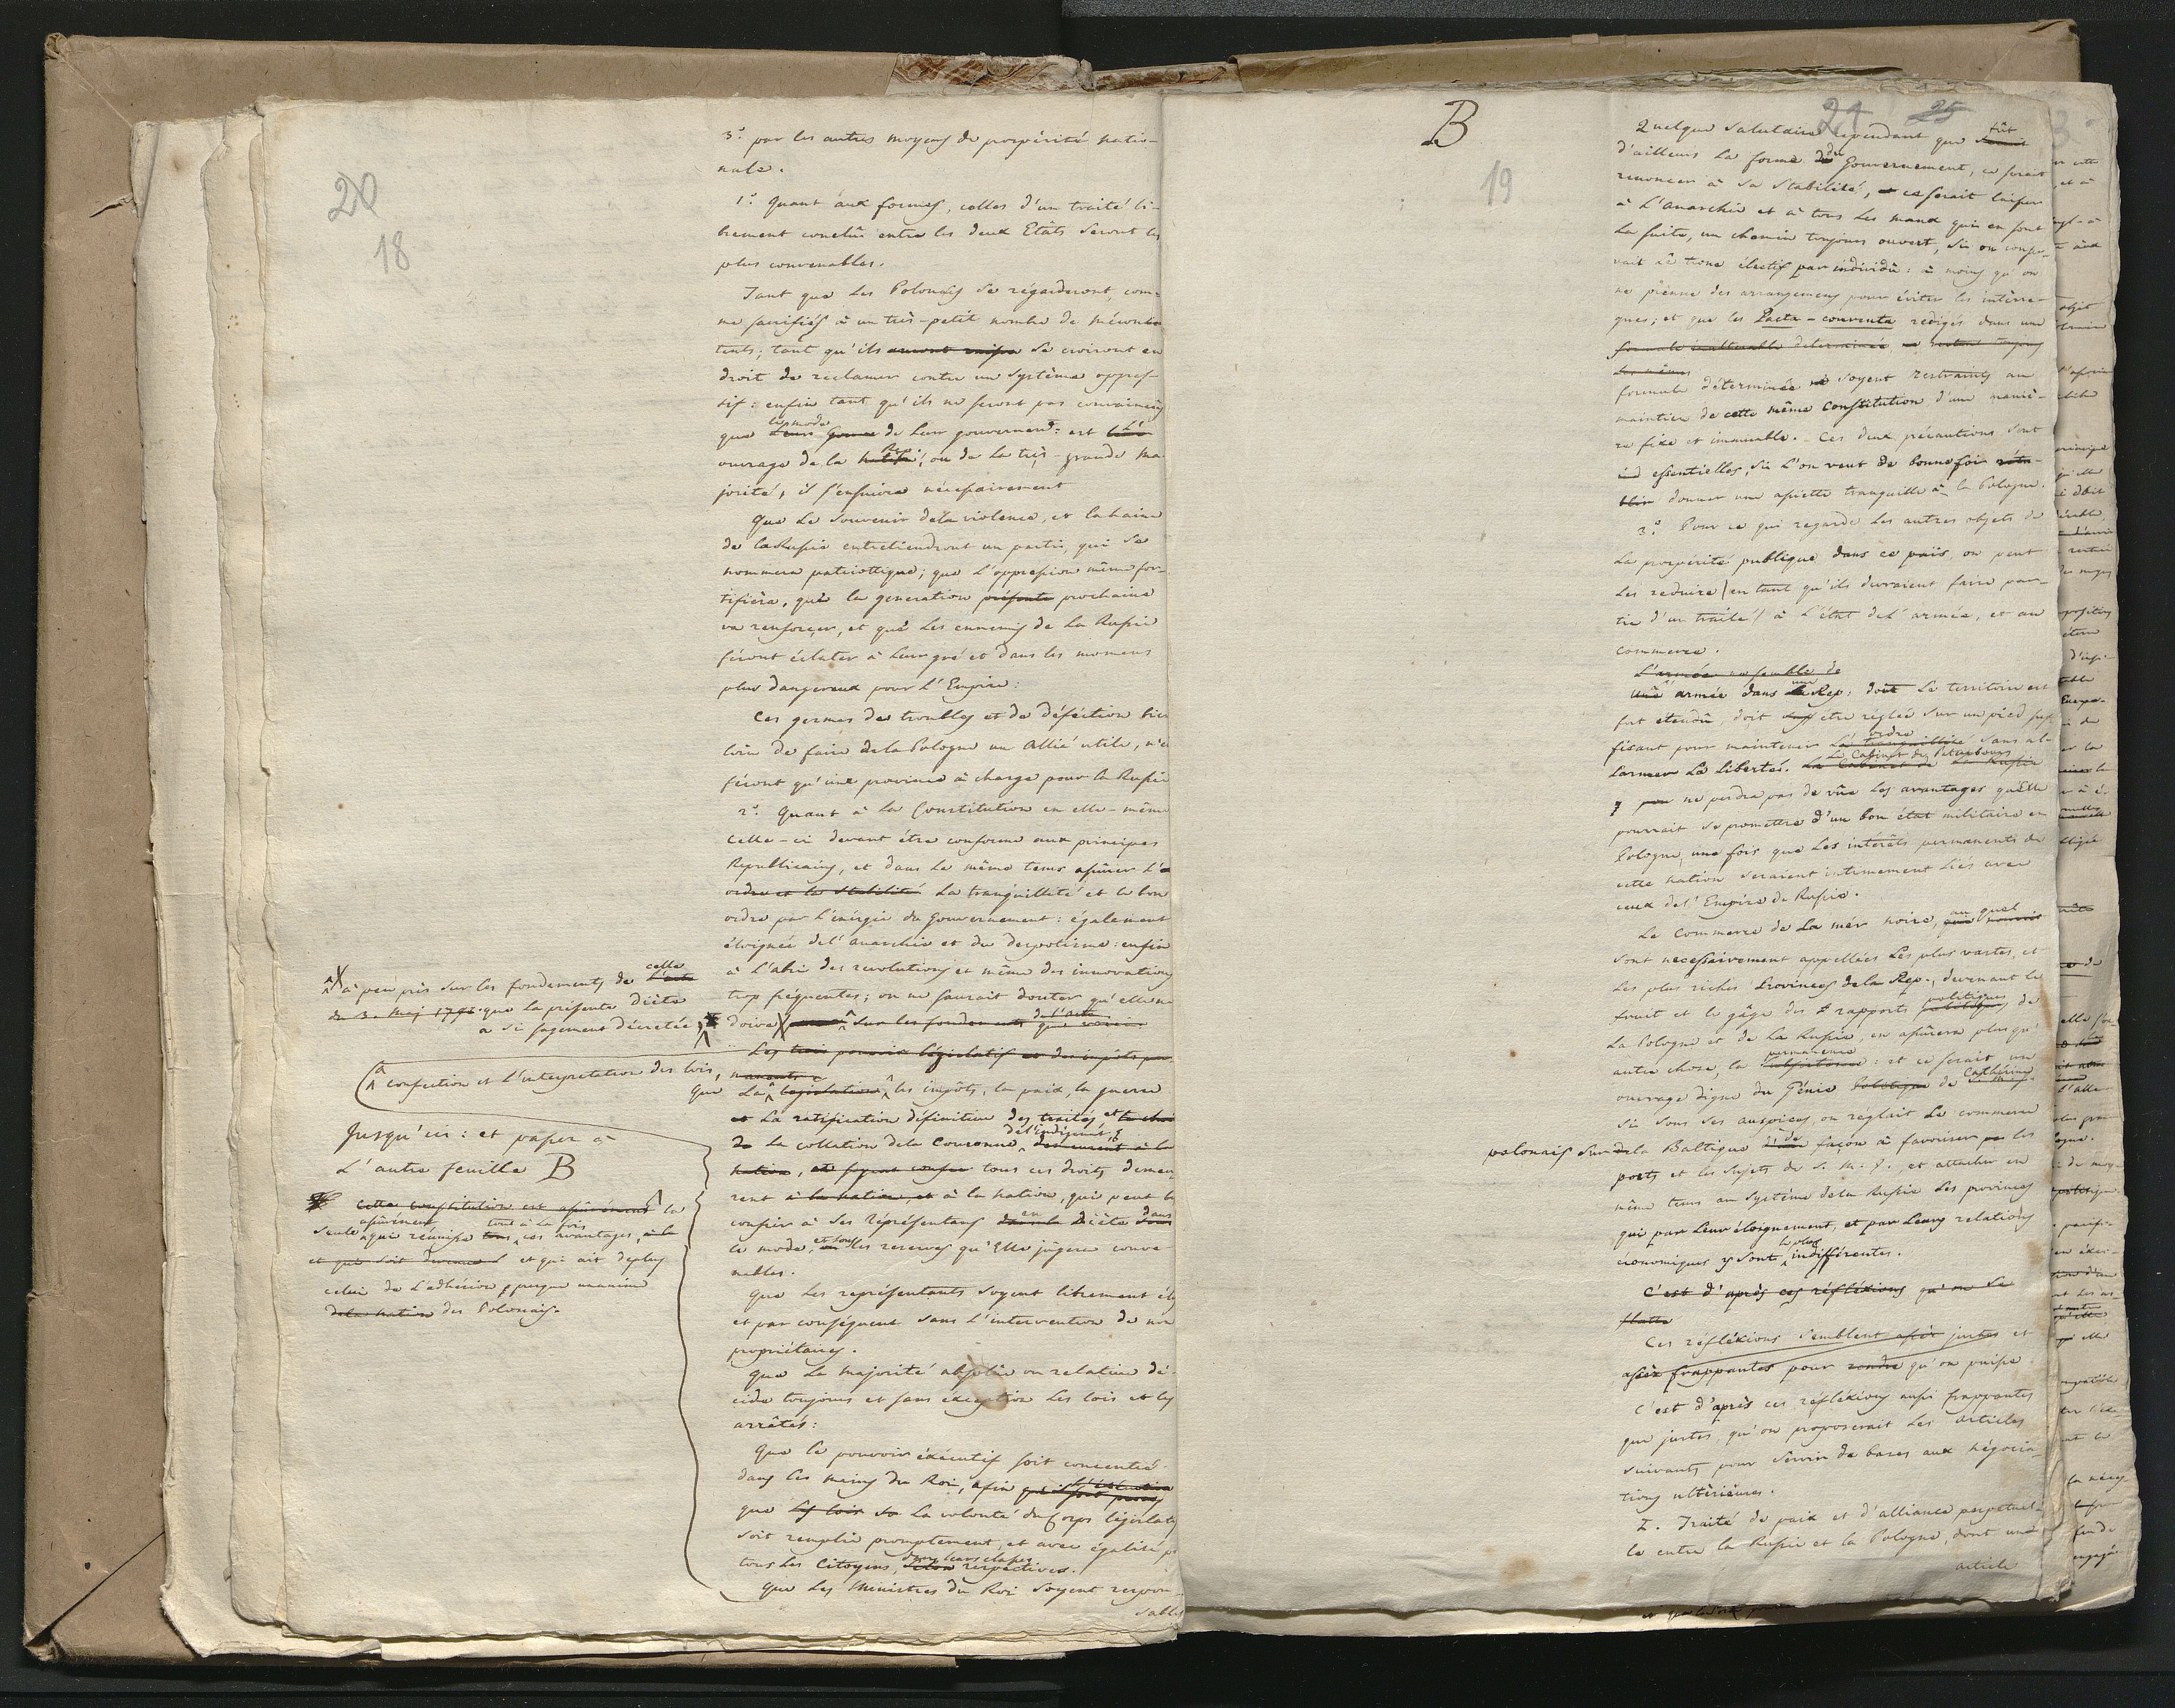 20
18
3.° par les autres moyens de prospérité natio-
nale.
1.° Quant aux formes, celles d'un traité li-
brement conclû entre les deux Etâts seront les
plus convenables.
Tant que les Polonais se régarderont, com-
me sacrifiés à un très-petit nombre de mécon-
tents; tant qu'ils auront raison se croiront en
droit de reclamer contre un système oppres-
sif: enfin tant qu'ils ne seront pas convaincus
que le mode de leur gouvernem: est l'
ouvrage de la, ou de la très-grande ma-
jorité, il s'ensuivra nécessairement
Que le souvenir de la violence, et la haine
de la Russie entretiendront un partie, qui se
nommera patriotique; que l'oppression même for-
tifiera, que la generation présente prochaine
va renforçer, et que les ennemis de la Russie
feront éclater à leur gré et dans les momens
plus dangereux pour l'Empire:
Ces germes de troubles et de déféction bien
loin de faire de la Pologne un Allié utile, n'en
feront qu'une province à charge pour la Russie
2.° Quant à la Constitution en elle-même
celle-ci devant être conforme aux principes
Republicains, et dans le même tems assurer l'
ordre et la stabilité la tranquillité et le bon
ordre par l'énergie du Gouvernement: également
éloignée de l'anarchie et du despotisme: enfin
à l'abri des revolutions et même des innovations
trop fréquentes; on ne saurait douter qu'elle ne
doive sur les fondements de l'acte que voici
à peu près sur les fondements de celle l'acte
du 3. Maj 1791. que la présente Diète
a si sagement décretée,
Les trois pouvoir législatif et des impôts per-
manents
confection et l'interpretation des lois,
que la legislation, les impôts, la paix, la guerre
et la ratification définitive des traités et le choix
de la collation de la Couronne, de l'indigenat, & demeurent à la
nation, et soyent tous ces droits demeu-
rent à la nation, et à la nation, qui peut les
confier à ses réprésentans en Diète dans
le mode, et sous les reserves qu'Elle jugera conve-
nables.
Jusqu'ici: et passer à
l'autre feuille B
Cette constitution est assurément la
seule assurément qui réunisse tous, tout à la fois ces avantages,
et qui soit devenue et qui ait deplus
celui de l'adhésion presque unanime
de la nation des Polonais.
Que les représentants soyent librement élus
et par conséquent sans l'intervention de non
propriétaires.
Que la majorité absolüe ou relative dé-
cide toujours et sans éxception les lois et les
arrêtés:
Que le pouvoir éxécutif soit concentré
dans les mains du Roi, afin
que les lois la volonté du Corps législatif
soit remplie promptement, et avec égalité
tous les Citoyens, dans leurs classes selon respectives.
Que les Ministres du Roi soyent respon-
sables
B
19
24
25
Quelque salutaire cependant que fût serait
d'ailleurs la forme du Gouvernement, ce serait
renoncer à sa stabilité, ce serait laisser
à l'anarchie et à tous les maux qui en sont
la suite, un chemin toujours ouvert, si on conser-
vait le trone électif par individû: à moins qu'on
ne prènne des arrangemens pour éviter les intérre-
gnes; et que les Pacta-conventa redigés dans une
formule inalterable determinée,
formule déterminée soyent restraints au
maintien de cette même Constitution d'une maniè-
re fixe et immuable. Ces deux précautions sont
essentielles, si l'on veut de bonne foi réta-
blir donner une assiette tranquille à la Pologne.
3.° Pour ce qui regarde les autres objets de
la prospérité publique dans ce païs, on peut
les reduire (en tant qu'ils devraient faire par-
tie d'un traité) à l'état de l'armée, et au
commerce.
L'armée
Une armée dans une Rep: dont le territoire est
fort étendû, doit être réglée sur un pied suf-
fisant pour maintenir l'ordre la tranquillité sans al-
larmer la liberté. Le Cabinet de Petersbourg La Cabinet de la Russie
ne perdra pas de vûe les avantages qu'elle
pourrait se promettre d'un bon état militaire en
Pologne, une fois que les intérêts permanents de
cette nation seraient intimement liés avec
ceux de l'Empire de Russie.
Le Commerce de la mer noire, au quel
sont necessairement appellées les plus vastes, et
les plus riches Provinces de la Rep., devenant le
fruit et le gâge des rapports politiques de
la Pologne et de la Russie, en assûrera plus qu'
autre chose, la permanence: et ce serait un
ouvrage digne du Génie politique de Cathérine
si sous ses auspices, on reglait le commerce
polonais sur la Baltique de façon à favoriser les
ports et les sujets de S. M. P. et attacher en
même tems au système de la Russie les provinces
qui par leur éloignement, et par leurs relations
économiques y sont le plus indifférentes.
C'est d'après ces réfléxions qu'on se
flatte
Ces réfléxions semblent assèz justes et
assèz frappantes pour rendre qu'on puisse
C'est d'après ces réfléxions aussi frappantes
que justes, qu'on proposerait les articles
suivants pour servir de bases aux négocia-
tions ultérieures.
I. Traité de paix et d'alliance perpetuel-
le entre la Russie et la Pologne, dont un
article